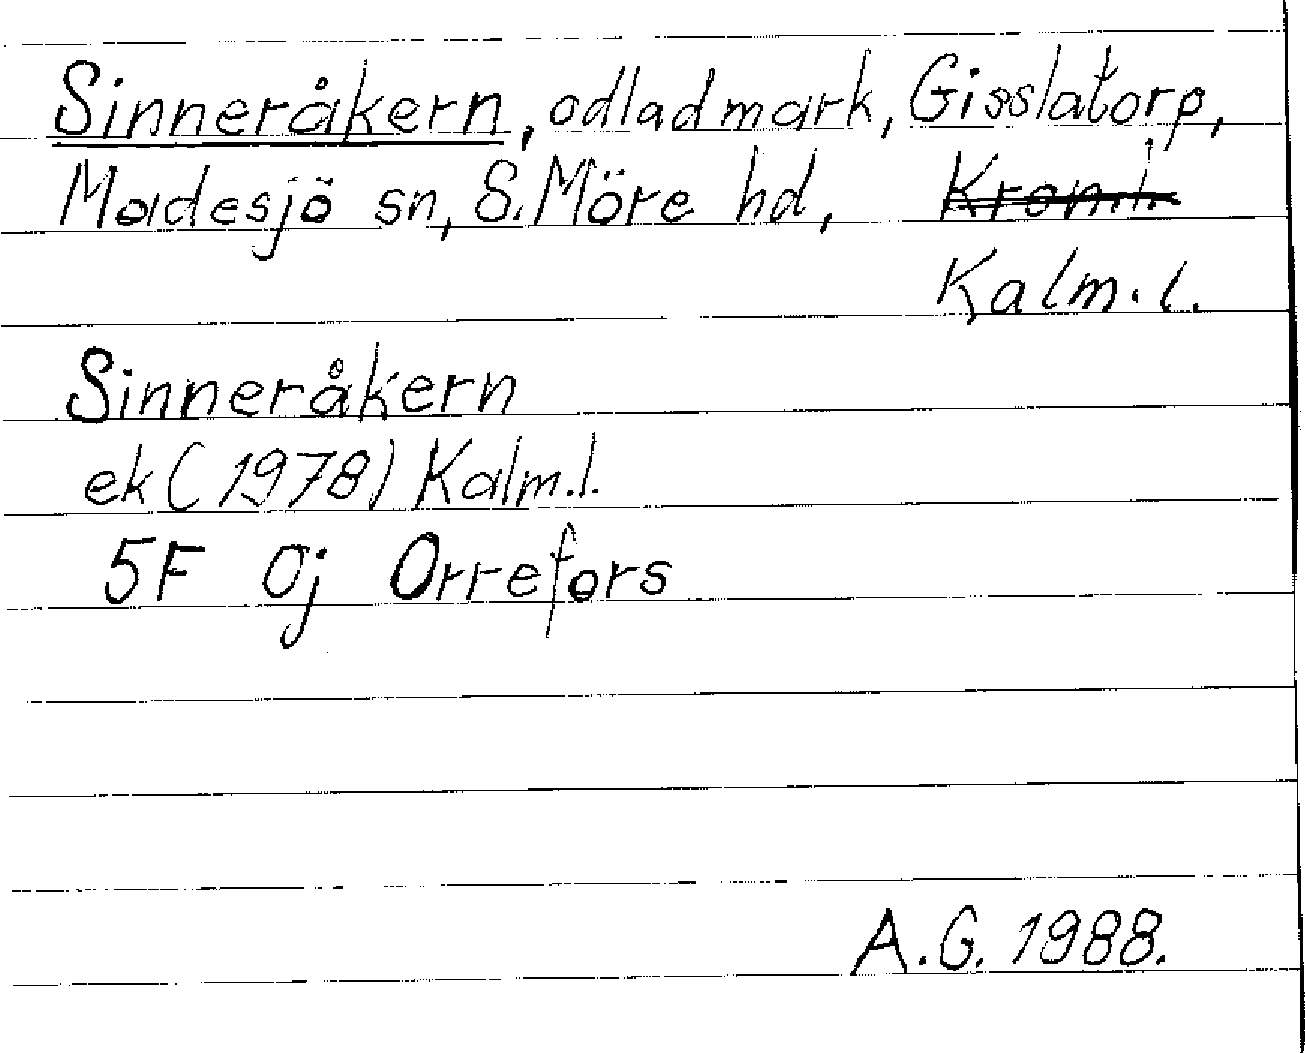 Sinneråkern, odlad mark, Gisslatorp,
Madesjö sn, S. Möre hd,
Kalm. l.
Sinneråkern
ek (1978) Kalm. l.
5F 0j Orrefors
A.G. 1988.